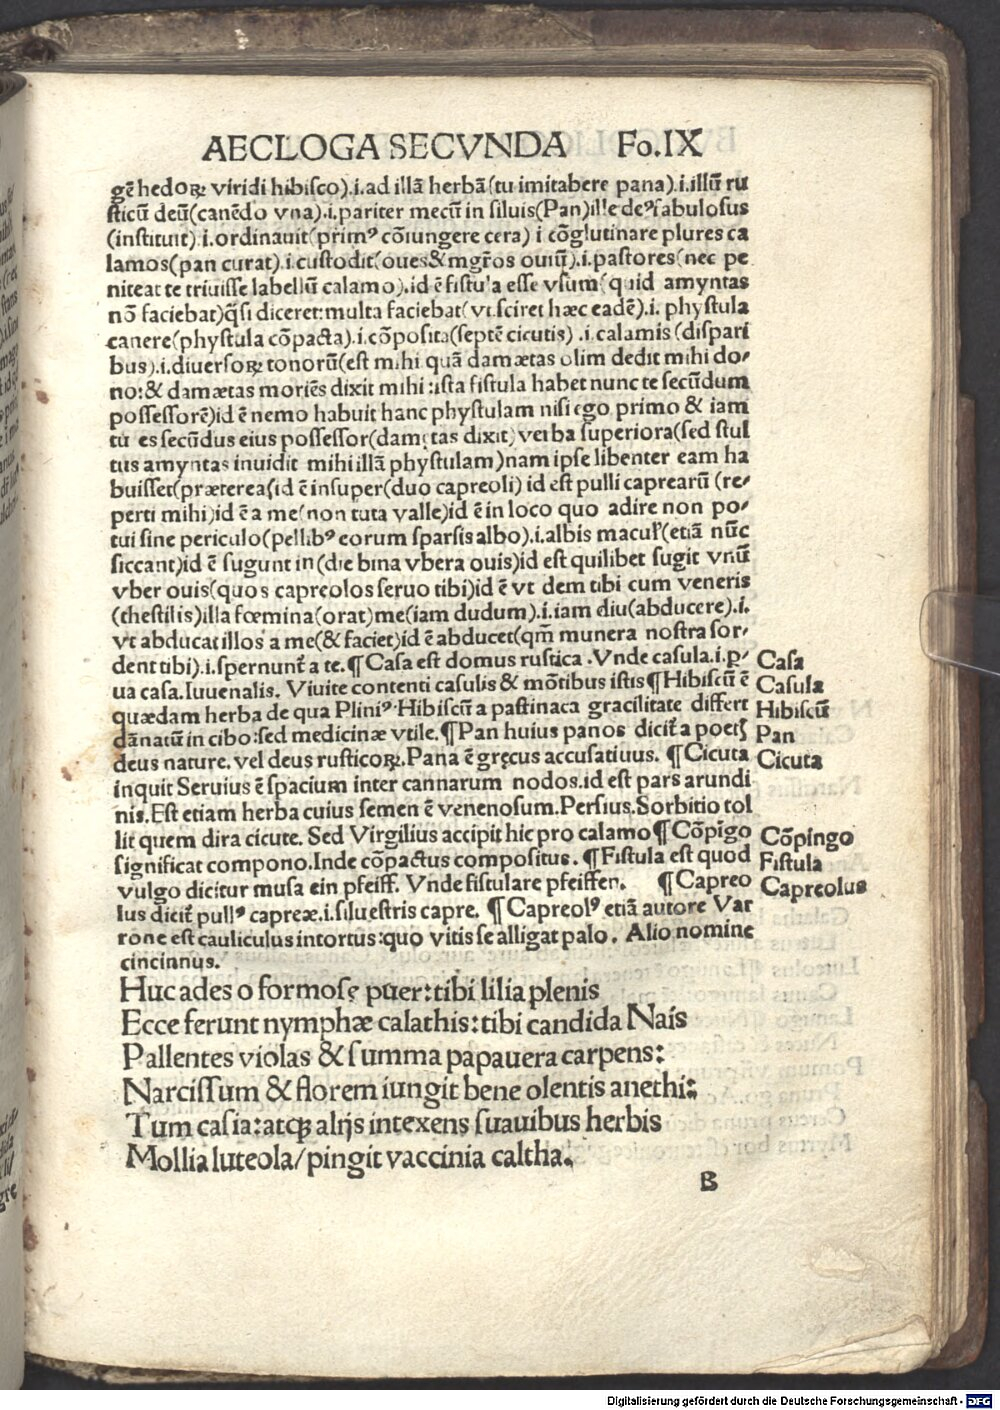 AECLOGA SECVNDA Fo.IX
gẽ hedoꝝ viridi hibisco).i.ad illã herbã(tu imitabere pana).i.illũ ru
sticũ deũ(canẽdo vna).i.pariter mecũ in siluis(Pan)ille deꝰ fabulosus
(instituit).i.ordinauit(primꝰ cõiungere cera) i cõglutinare plures ca
lamos(pan curat).i.custodit(oues&mgr̃os ouiũ).i.pastores(nec pe
niteat te triuisse labellũ calamo).id ẽ fistula esse vsum(quid amyntas
nõ faciebat)q̃si diceret:multa faciebat(vt sciret hæc eadẽ).i. phystula
canere(phystula cõpacta).i.cõposita(septẽ cicutis) .i.calamis(dispari
bus).i.diuersoꝝ tonorũ(est mihi quã damætas olim dedit mihi do⸗
no:& damætas moriẽs dixit mihi:ista fistula habet nunc te secũdum
possessorẽ)id ẽ nemo habuit hanc phystulam nisi ego primo & iam
tu es secũdus eius possessor(damętas dixit) verba superiora(sed stul
tus amyntas inuidit mihi illã phystulam)nam ipse libenter eam ha
buisset(præterea)id ẽ insuper(duo capreoli) id est pulli caprearũ(re⸗
perti mihi)id ẽ a me(non tuta valle)id ẽ in loco quo adire non po⸗
tui sine periculo(pellibꝰ eorum sparsis albo).i.albis macul̉(etiã nũc
siccant)id ẽ sugunt in(die bina vbera ouis)id est quilibet sugit vnũ
vber ouis(quos capreolos seruo tibi)id ẽ vt dem tibi cum veneris
(thestilis)illa fœmina(orat)me(iam dudum).i.iam diu(abducere).i.
vt abducat illos a me(& faciet)id ẽ abducet(qm̃ munera nostra sor⸗
dent tibi).i.spernunt̃ a te.¶Casa est domus rustica .Vnde casula.i.ꝑ⸗
ua casa.Iuuenalis. Viuite contenti casulis & mõtibus istis¶Hibiscũ ẽ
quædam herba de qua Pliniꝰ.Hibiscũ a pastinaca gracilitate differt
dãnatũ in cibo:sed medicinæ vtile.¶Pan huius panos dicit̃ a poetꝭ
deus nature. vel deus rusticoꝝ.Pana ẽ gręcus accusatiuus. ¶Cicuta
inquit Seruius ẽ spacium inter cannarum nodos.id est pars arundi
nis.Est etiam herba cuius semen ẽ venenosum.Persius.Sorbitio tol
lit quem dira cicute. Sed Virgilius accipit hic pro calamo¶Cõpĩgo
significat compono.Inde cõpactus compositus. ¶Fistula est quod
vulgo dicitur musa ein pfeiff. Vnde fistulare pfeiffen. ¶Capreo
lus dicit̃ pullꝰ capreæ.i.siluestris capre. ¶Capreolꝰ etiã autore Var
rone est cauliculus intortus:quo vitis se alligat palo. Alio nomine
cincinnus.
Casa
Casula
Hibiscũ
Pan
Cicuta
Cõpingo
Fistula
Capreolus
Huc ades o formosę puer:tibi lilia plenis
Ecce ferunt nymphæ calathis:tibi candida Nais
Pallentes violas & summa papauera carpens:
Narcissum & florem iungit bene olentis anethi:
Tum casia:atqꝫ alijs intexens suauibus herbis
Mollia luteola/pingit vaccinia caltha.
B
Digitalisierung gefördert durch die Deutsche Forschungsgemeinschaft - DFG